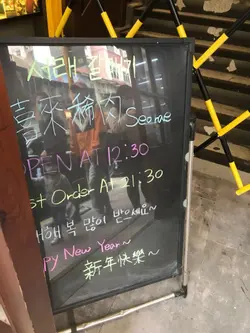 서래 갈매기
喜來稀肉 Seorae
OPEN AT 12:30
st Order At 21:30
새해 복 많이 받으세요~
py New Year~
新年快樂~